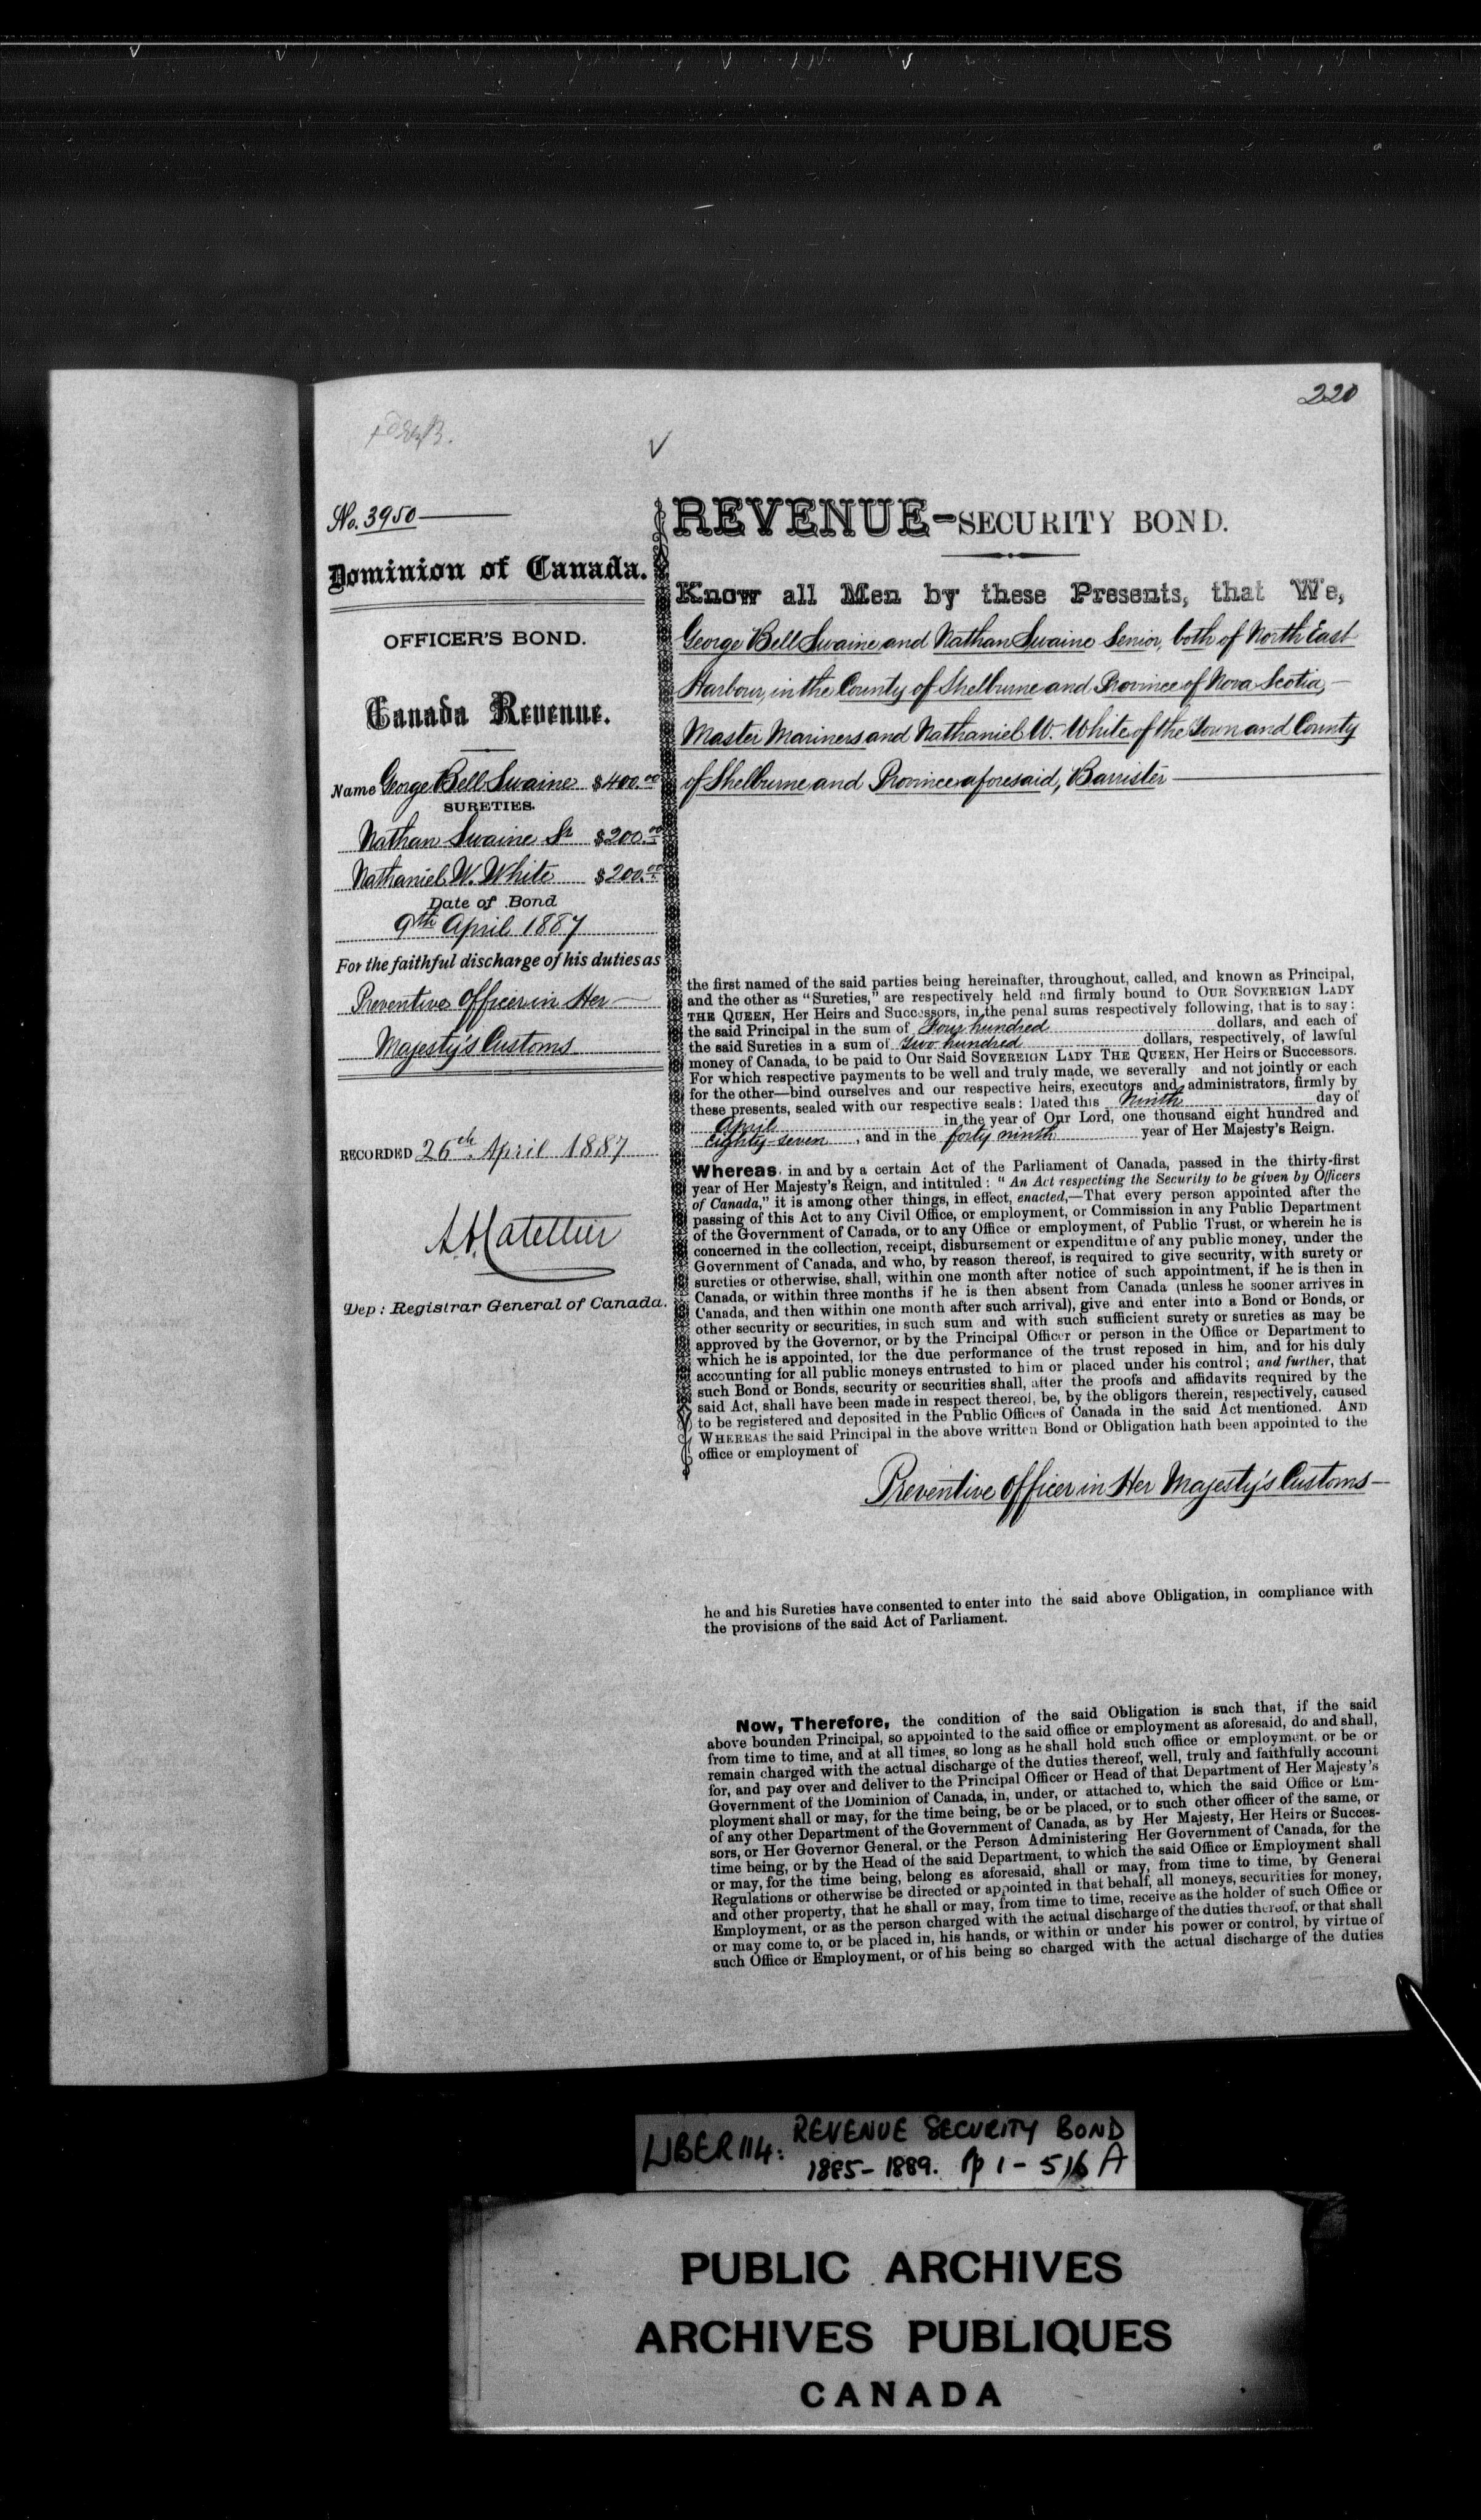 220
No. 3950
Dominion of Canada.
OFFICER'S BOND.
Canada Revenue.
Name George Bell Swaine $400.00
SURETIES.
Nathan Swaine Sr $200.00
Nathaniel W. White $200.00
Date of Bond
9th April 1887
For the faithful discharge of his duties as
Preventive Officer in Her
Majesty's Customs
RECORDED 26th April 1887
Dep: Registrar General of Canada.
REVENUE-SECURITY BOND.
Know all Men by these Presents, that We,
George Bell Swaine and Nathan Swaine Senior, both of North East
Harbour, in the County of Shelburne and Province of Nova Scotia,
Master Mariners and Nathaniel W. White of the Town and County
of Shelburne and Province aforesaid, Barrister
the first named of the said parties being hereinafter, throughout, called, and known as Principal,
and the other as "Sureties," are respectively held and firmly bound to OUR SOVEREIGN LADY
THE QUEEN, Her Heirs and Successors, in the penal sums respectively following, that is to say:
the said Principal in the sum of Four hundred dollars, and each of
the said Sureties in a sum of Two hundred dollars, respectively, of lawful
money of Canada, to be paid to Our Said SOVEREIGN LADY THE QUEEN, Her Heirs or Successors.
For which respective payments to be well and truly made, we severally and not jointly or each
for the other—bind ourselves and our respective heirs, executors and administrators, firmly by
these presents, sealed with our respective seals: Dated this Ninth day of
April in the year of Our Lord, one thousand eight hundred and
eighty-seven, and in the forty ninth year of Her Majesty's Reign.
Whereas, in and by a certain Act of the Parliament of Canada, passed in the thirty-first
year of Her Majesty's Reign, and intituled: "An Act respecting the Security to be given by Officers
of Canada," it is among other things, in effect, enacted,—That every person appointed after the
passing of this Act to any Civil Office, or employment, or Commission in any Public Department
of the Government of Canada, or to any Office or employment, of Public Trust, or wherein he is
concerned in the collection, receipt, disbursement or expenditure of any public money, under the
Government of Canada, and who, by reason thereof, is required to give security, with surety or
sureties or otherwise, shall, within one month after notice of such appointment, if he is then in
Canada, or within three months if he is then absent from Canada (unless he sooner arrives in
Canada, and then within one month after such arrival), give and enter into a Bond or Bonds, or
other security or securities, in such sum and with such sufficient surety or sureties as may be
approved by the Governor, or by the Principal Officer or person in the Office or Department to
which he is appointed, for the due performance of the trust reposed in him, and for his duly
accounting for all public moneys entrusted to him or placed under his control; and further, that
such Bond or Bonds, security or securities shall, after the proofs and affidavits required by the
said Act, shall have been made in respect thereof, be, by the obligors therein, respectively, caused
to be registered and deposited in the Public Offices of Canada in the said Act mentioned. AND
WHEREAS the said Principal in the above written Bond or Obligation hath been appointed to the
office or employment of
Preventive Officer in Her Majesty's Customs
he and his Sureties have consented to enter into the said above Obligation, in compliance with
the provisions of the said Act of Parliament.
Now, Therefore, the condition of the said Obligation is such that, if the said
above bounden Principal, so appointed to the said office or employment as aforesaid, do and shall,
from time to time, and at all times, so long as he shall hold such office or employment, or be or
remain charged with the actual discharge of the duties thereof, well, truly and faithfully account
for, and pay over and deliver to the Principal Officer or Head of that Department of Her Majesty's
Government of the Dominion of Canada, in, under, or attached to, which the said Office or Em-
ployment shall or may, for the time being, be or be placed, or to such other officer of the same, or
of any other Department of the Government of Canada, as by Her Majesty, Her Heirs or Succes-
sors, or Her Governor General, or the Person Administering Her Government of Canada, for the
time being, or by the Head of the said Department, to which the said Office or Employment shall
or may, for the time being, belong as aforesaid, shall or may, from time to time, by General
Regulations or otherwise be directed or appointed in that behalf, all moneys, securities for money,
and other property, that he shall or may, from time to time, receive as the holder of such Office or
Employment, or as the person charged with the actual discharge of the duties thereof, or that shall
or may come to, or be placed in, his hands, or within or under his power or control, by virtue of
such Office or Employment, or of his being so charged with the actual discharge of the duties
LIBER 114: REVENUE SECURITY BOND
1885-1889. pp 1-516 A
PUBLIC ARCHIVES
ARCHIVES PUBLIQUES
CANADA